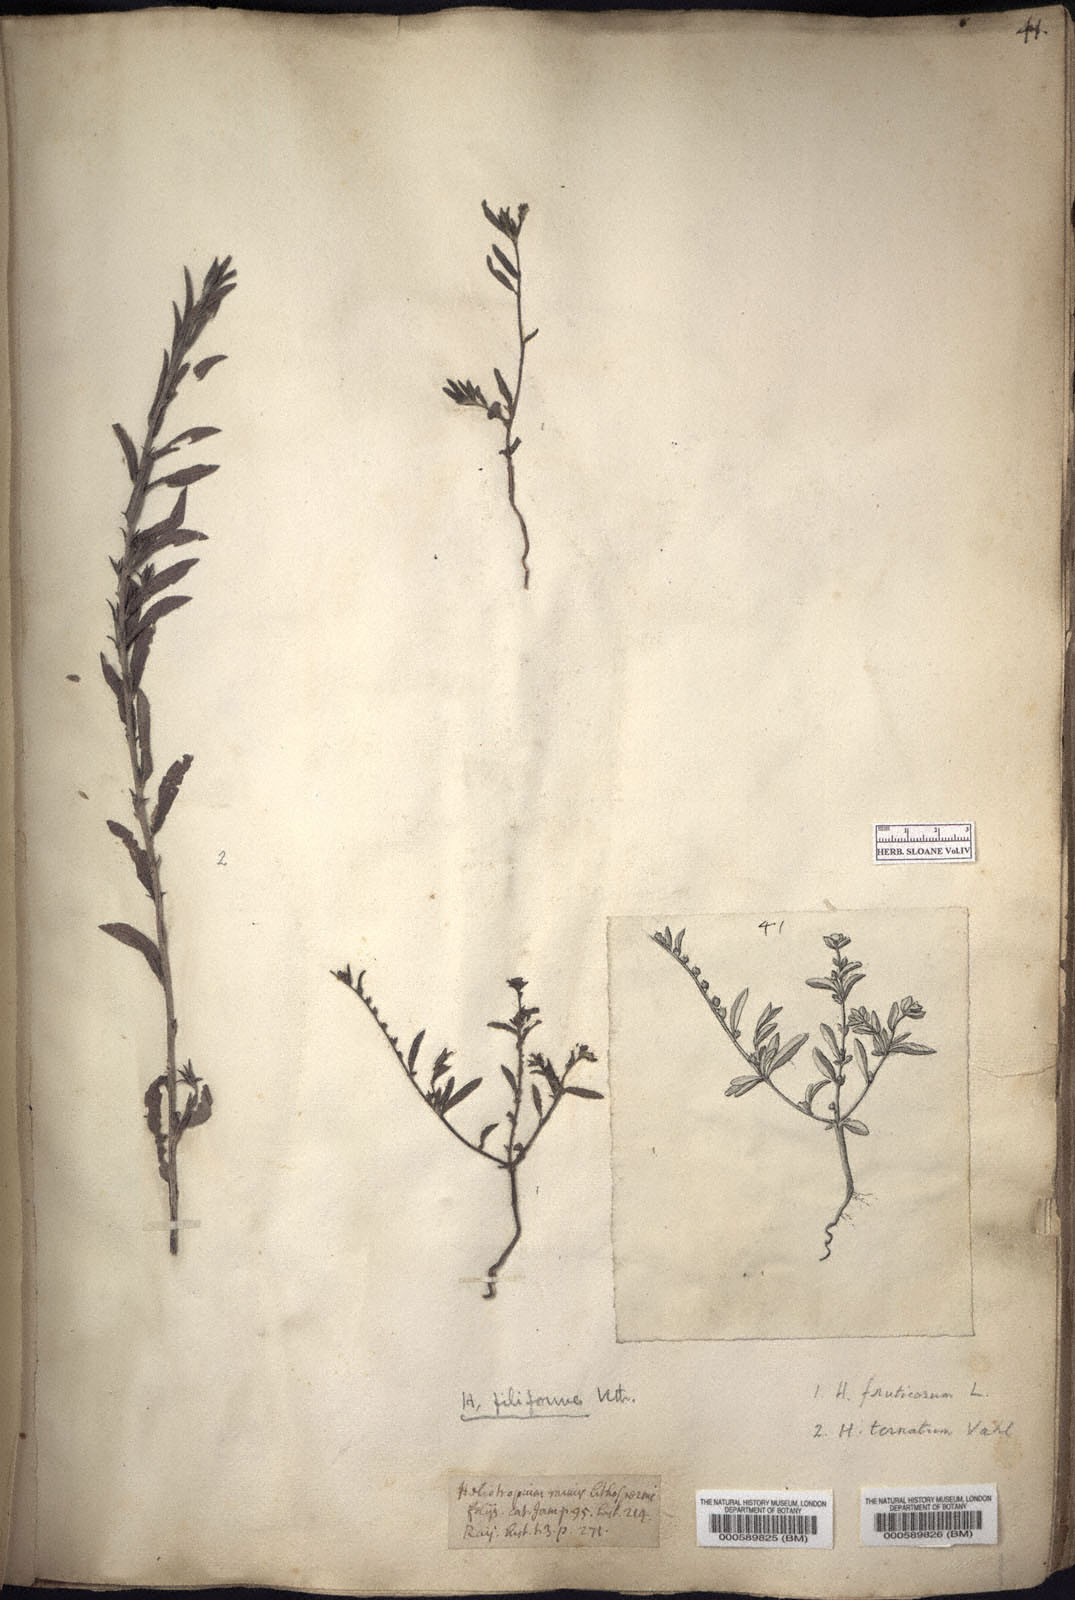 41.
1
2
1 2 3
HERB. SLOANE Vol.IV
41
1
H. filiforme Hth.
1. H. fruticosum L.
2. H. ternatum Vahl
Heliotropium minus lithospermi
folijs. Cat. Jam. p. 95. hist. 214.
Raij. hist. t. 3. p. 271.
THE NATURAL HISTORY MUSEUM, LONDON
DEPARTMENT OF BOTANY
000589825 (BM)
THE NATURAL HISTORY MUSEUM, LONDON
DEPARTMENT OF BOTANY
000589826 (BM)